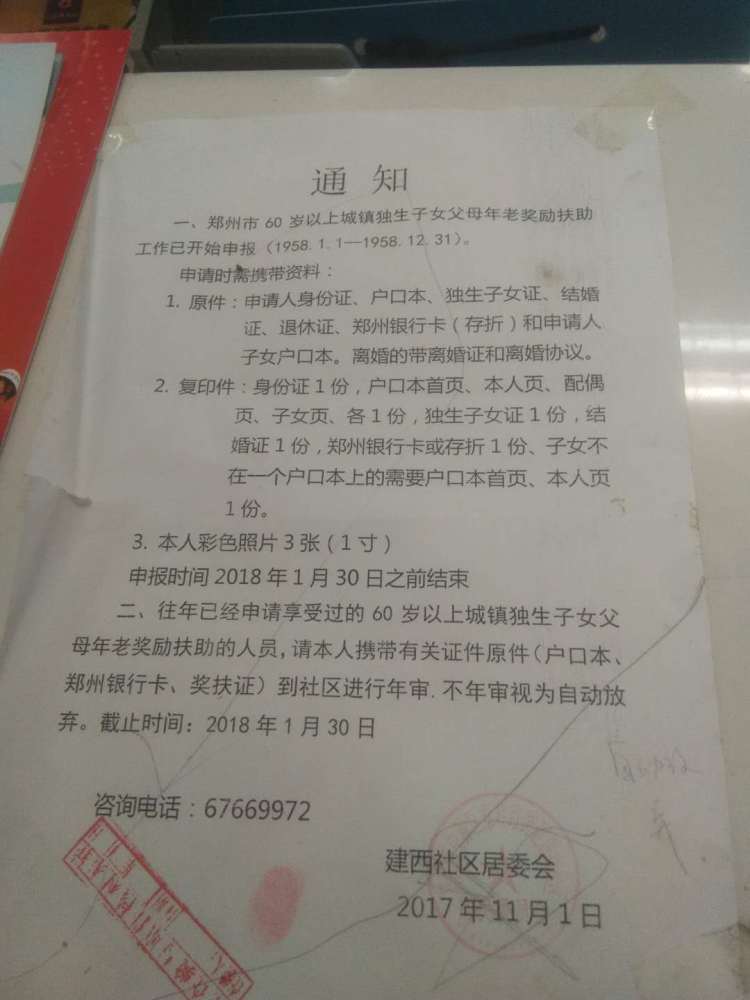 通 知
一、郑州市 60 岁以上城镇独生子女父母年老奖励扶助
工作已开始申报（1958.1.1—1958.12.31）。
申请时需携带资料：
1. 原件：申请人身份证、户口本、独生子女证、结婚
证、退休证、郑州银行卡（存折）和申请人
子女户口本。离婚的带离婚证和离婚协议。
2. 复印件：身份证 1 份，户口本首页、本人页、配偶
页、子女页、各 1 份，独生子女证 1 份，结
婚证 1 份，郑州银行卡或存折 1 份、子女不
在一个户口本上的需要户口本首页、本人页
1 份。
3. 本人彩色照片 3 张（1 寸）
申报时间 2018 年 1 月 30 日之前结束
二、往年已经申请享受过的 60 岁以上城镇独生子女父
母年老奖励扶助的人员，请本人携带有关证件原件（户口本、
郑州银行卡、奖扶证）到社区进行年审. 不年审视为自动放
弃。截止时间：2018 年 1 月 30 日
咨询电话：67669972
建西社区居委会
2017 年 11 月 1 日